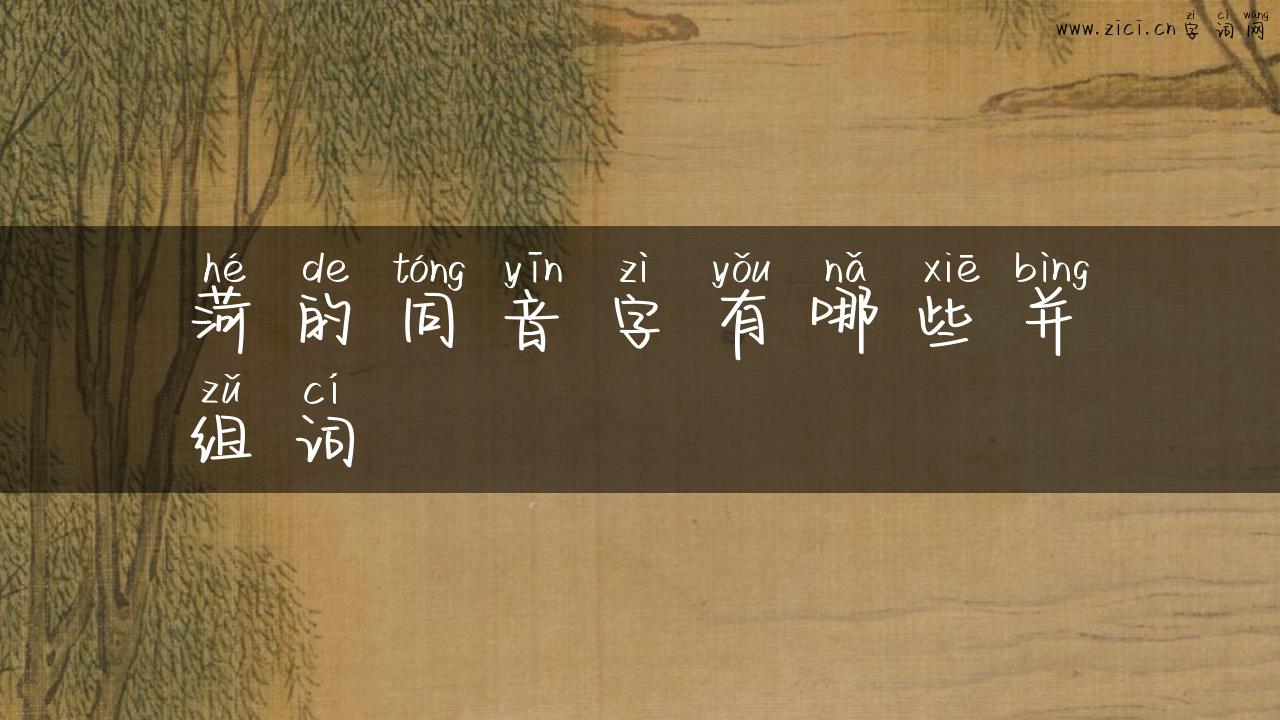 zì cí wǎng
www.zici.cn字词网
hé de tóng yīn zì yǒu nǎ xiē bìng
菏的同音字有哪些并
zǔ cí
组词